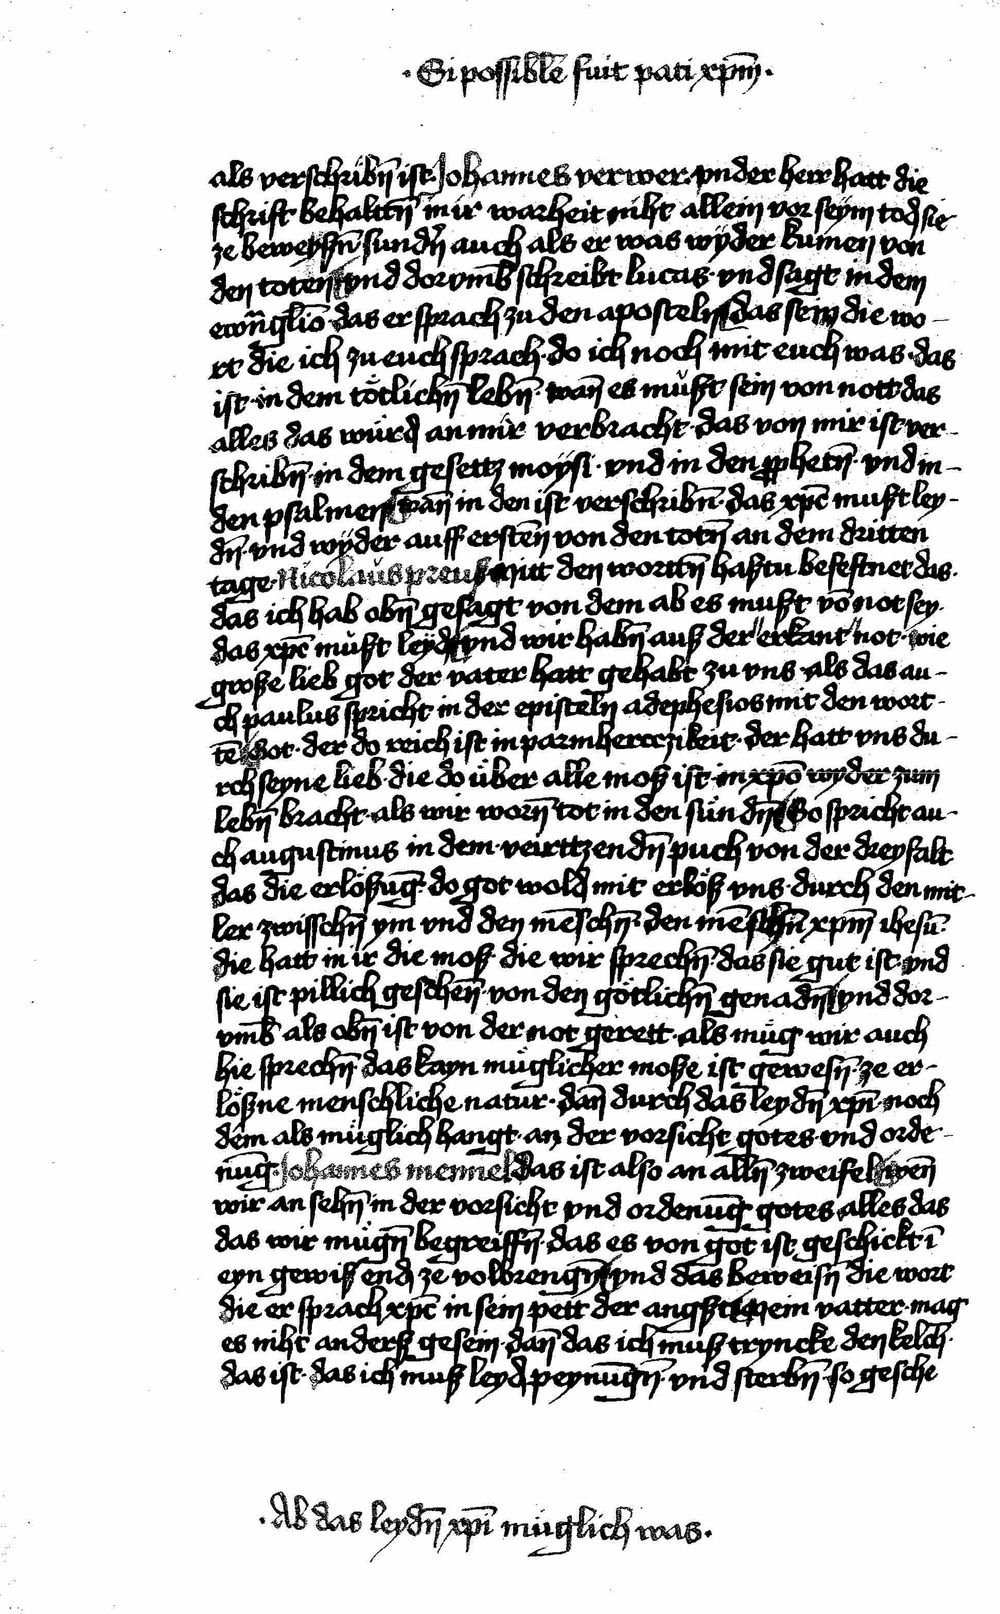 · Si possible᷎ fuit pati xp̄m ·
als verschribn̄ ist · Johannes verwer · vnd der herr hatt die
schrift behaltn̄ in ir warheit niht allein vor seym tod sie
ze beweysn̄ sundn̄ auch als er was wyder kumen von
den toten vnd dorvmb̄ schreibt lucas · vnd sagt in dem
ewāglio · das er sprach zu den aposteln das sein die wo-
rt die ich zu euch sprach · do ich noch mit euch was · das
ist · in dem tötlichn̄ lebn̄ · wan̄ es mußt sein von nott das
alles das würd an mir verbracht · das von mir ist ver-
schribn̄ · in dem gesettz moysi · vnd in den ꝓphetn̄ · vnd in-
den psalmen wan̄ in den ist verschribn̄ · das xp̄c mußt ley-
dn̄ · vnd wyder auff ersten̄ von den totn̄ an dem dritten
tage · Nicolaus preuß Mitt den wortn̄ hastu befestnet das ·
das ich hab obn̄ gesagt von dem ab es mußt vō not sey ·
das xp̄c mußt leydn̄ vnd wir habn̄ auß der erkant not · wie
große lieb got der vater hatt gehabt zu vns · als das au-
ch paulus spricht in der episteln ad ephesios mit den wort-
tē Got · der do reich ist in parmherczikeit · der hatt vns du-
rch seyne lieb · die do über alle moß ist · in xpō wyder zum
lebn̄ bracht · als wir worn̄ tot in den sündn̄ So spricht au-
ch augustinus in dem · veirttzendn̄ puch von der dreyfalt
das die erlößūg · do got wold mit erlöß vns · durch den mit-
ler zwisschn̄ ym vnd den mēschn̄ · den mēschn̄ xpm̄ ihesū ·
die hatt in ir die moß · die wir sprechn̄ · das sie gut ist · vnd
sie ist pillich geschen̄ · von den götlichn̄ genadn̄ vnd dor-
vmb̄ als obn̄ ist von der not gerett · als müg wir auch
hie sprechn̄ · das kayn müglicher moße ist gewesn̄ · ze er-
lößne menschliche natur · dan̄ durch das leydn̄ xpī · noch
dem als müglich hangt · an der vorsicht gotes · vnd orde-
nūg · Johannes mennel das ist also an alln̄ zweifel wen̄
wir an sehn̄ in der vorsicht vnd ordenūg gotes · alles das
das wir mügn̄ begreiffn̄ · das es von got ist geschickt ī
eyn gewiß end ze volbrengn̄ vnd das beweisn̄ die wort
die er sprach xp̄c in sein pett der angst Mein vatter · mag
es niht anderß gesein · dan̄ das ich muß tryncke den kelch ·
das ist · das ich muß leyd peynūgn̄ · vnd sterbn̄ · so gesche
· Ab das leydn̄ xpī müglich was ·